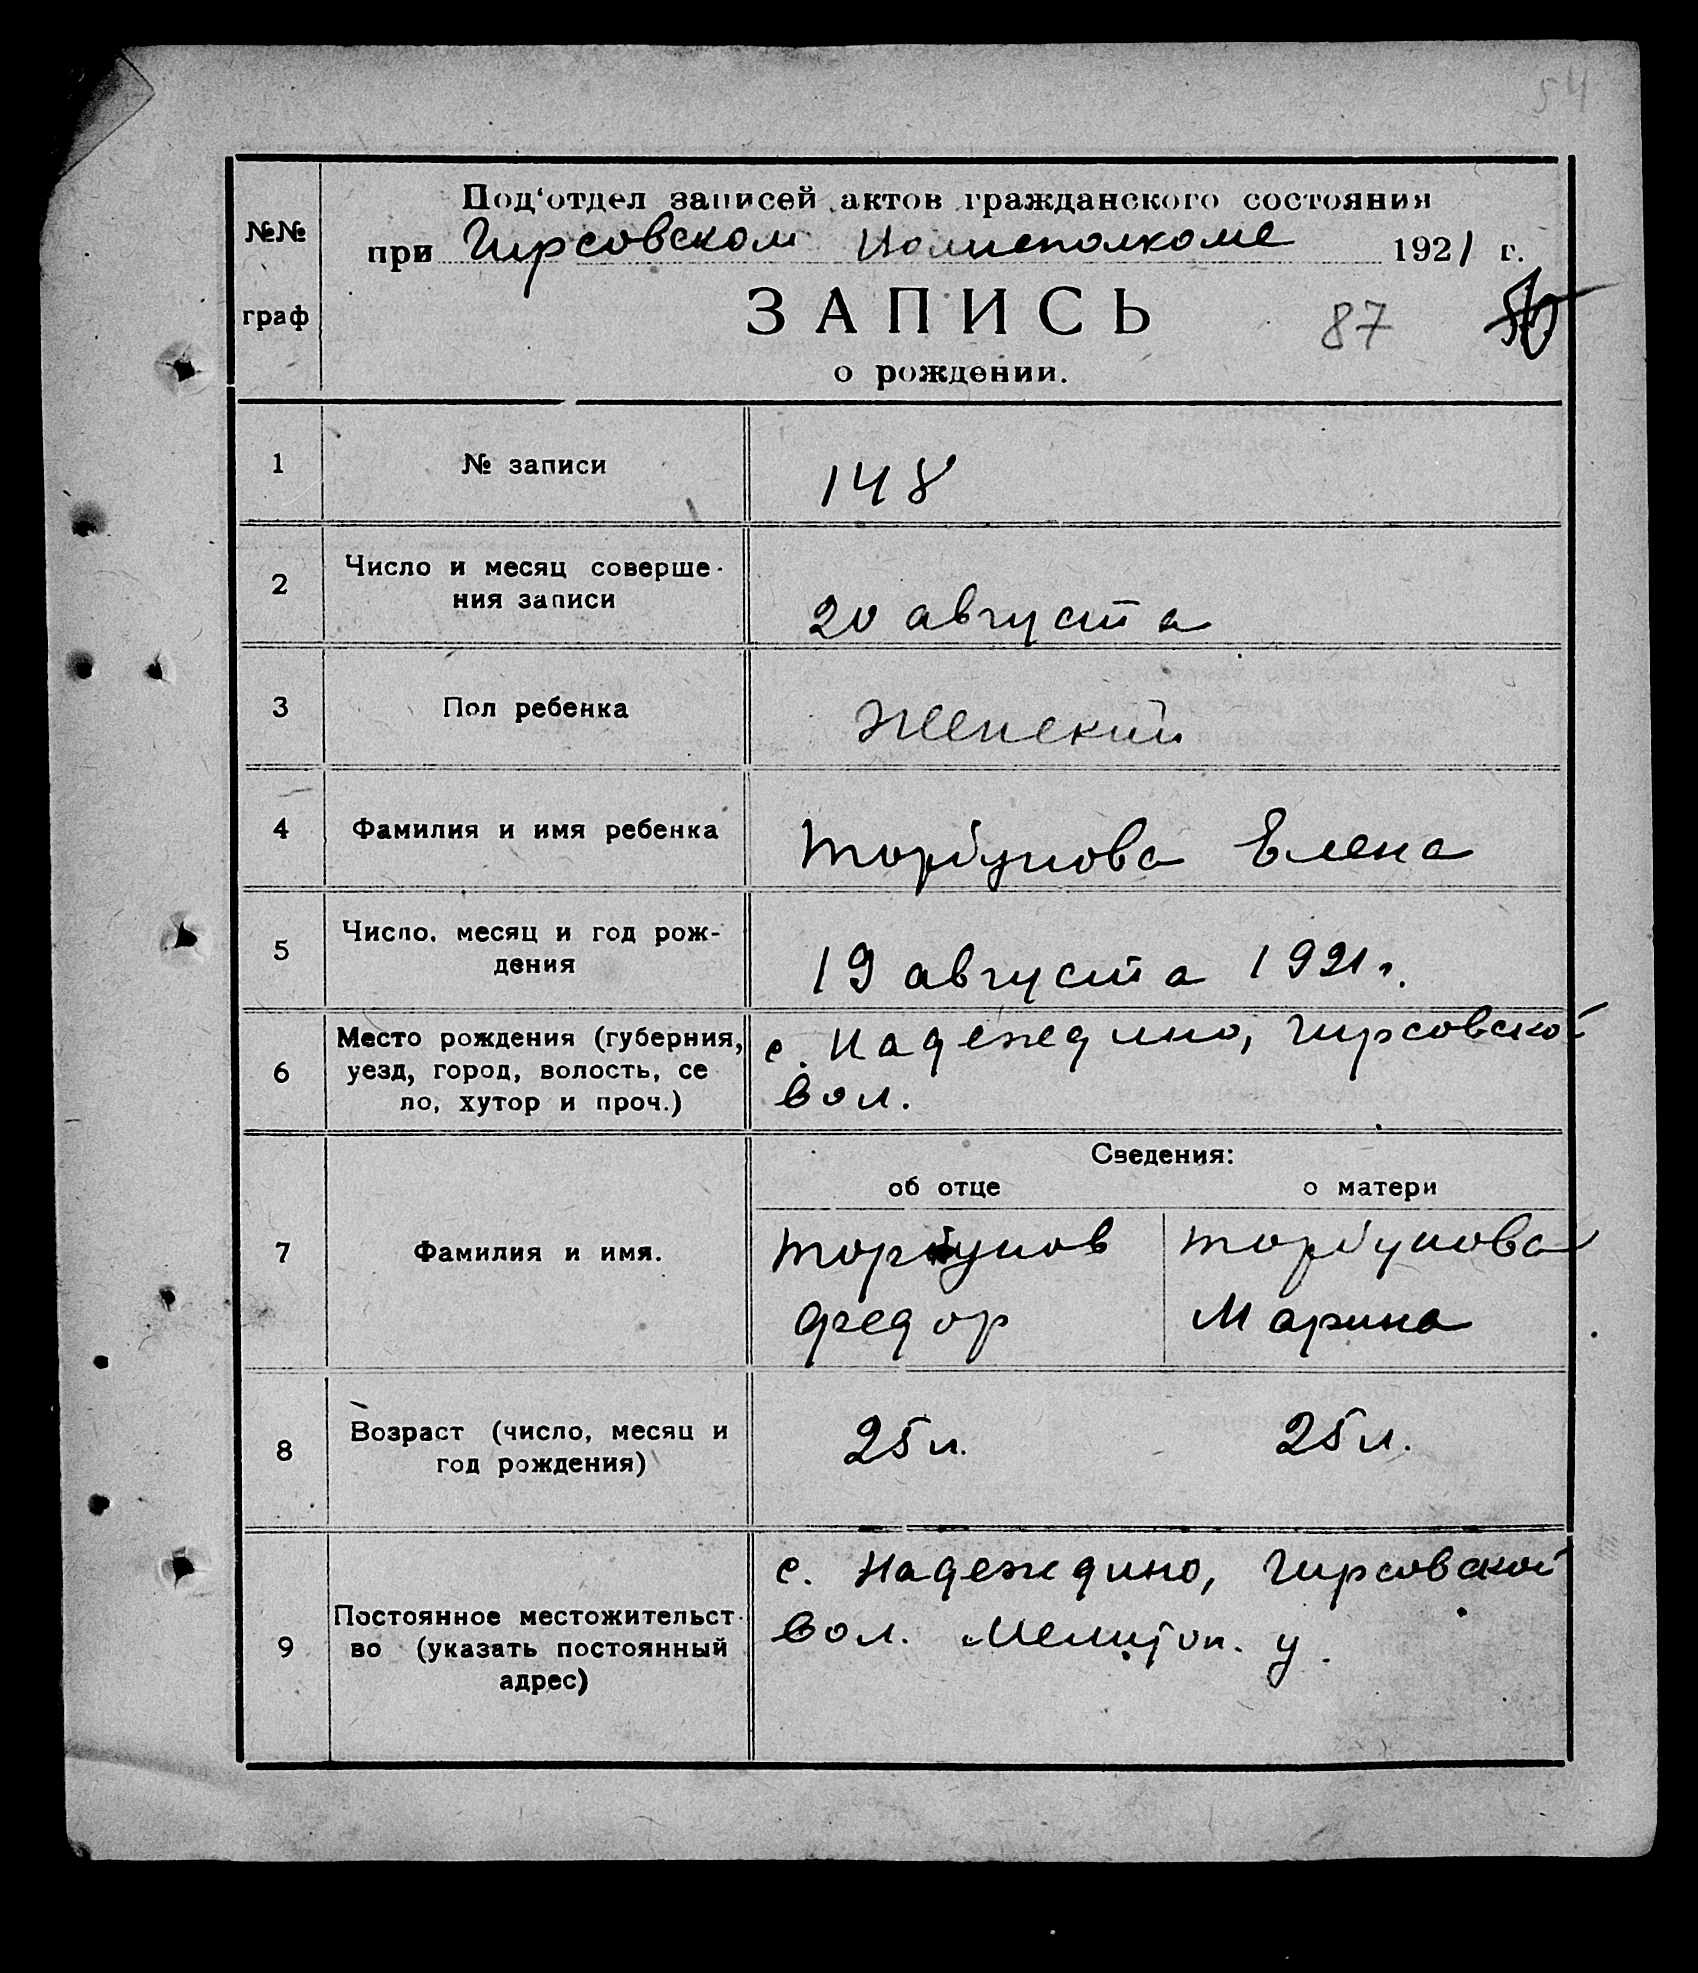 54
№№
граф
Под'отдел записей актов гражданского состояния
при Гирсовском Волисполкоме 1921 г.
ЗАПИСЬ
87
о рождении.
1
№ записи
148
2
Число и месяц соверше-
ния записи
20 августа
3
Пол ребенка
Женский
4
Фамилия и имя ребенка
Торбунова Елена
5
Число, месяц и год рож-
дения
19 августа 1921 г.
6
Место рождения (губерния,
уезд, город, волость, се
ло, хутор и проч.)
с. Надеждино, Гирсовской
вол.
Сведения:
об отце
о матери
7
Фамилия и имя.
Торбунов
Федор
Торбунова
Марина
8
Возраст (число, месяц и
год рождения)
25 л.
25 л.
9
Постоянное местожительст-
во (указать постоянный
адрес)
с. Надеждино, Гирсовской
вол. Мелитоп. у.